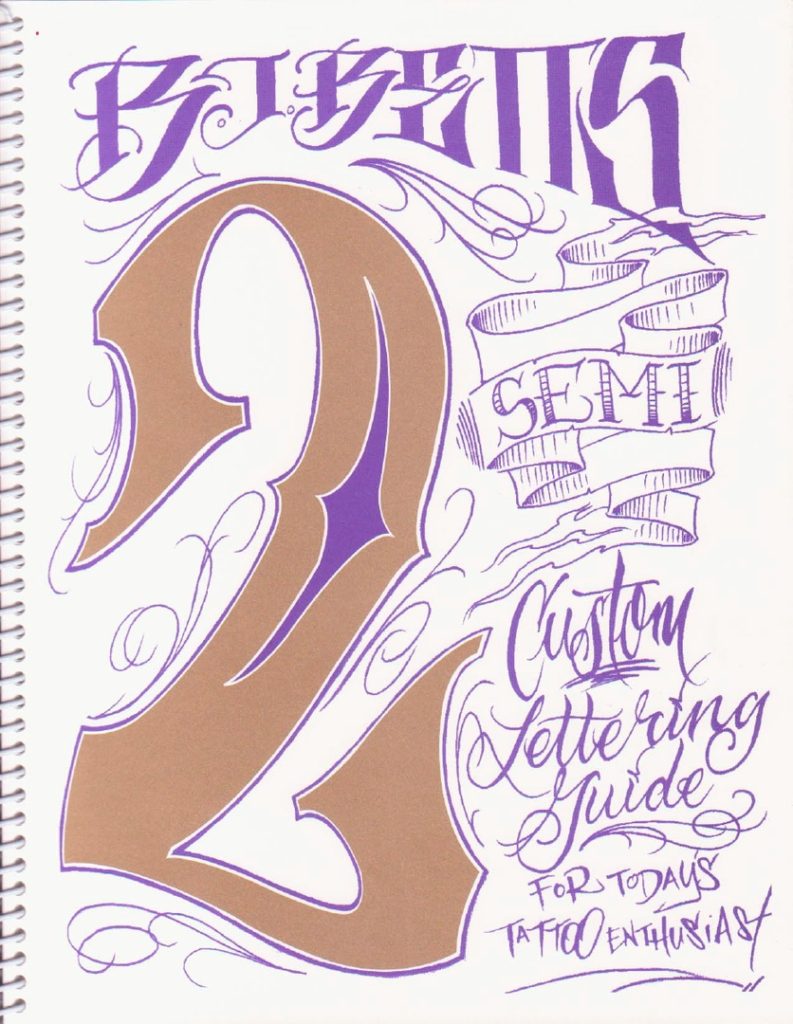 B.J. BETTS
2
SEMI
Custom
Lettering
Guide
FOR TODAY'S
TATTOO ENTHUSIAST